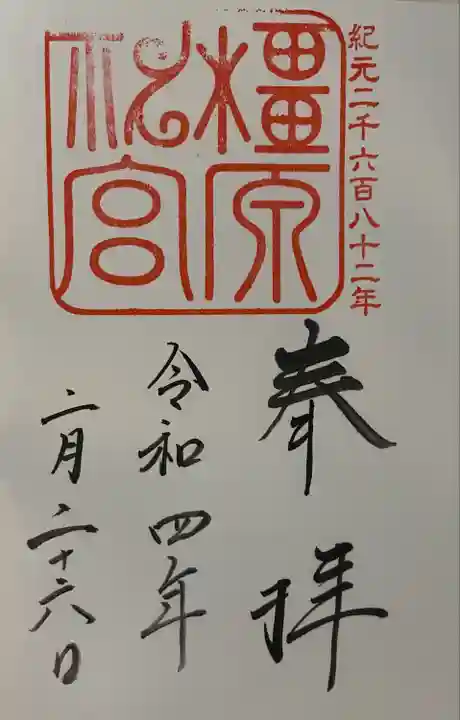 紀元二千六百八十二年
橿原
神宮
奉拝
令和四年
二月二十六日